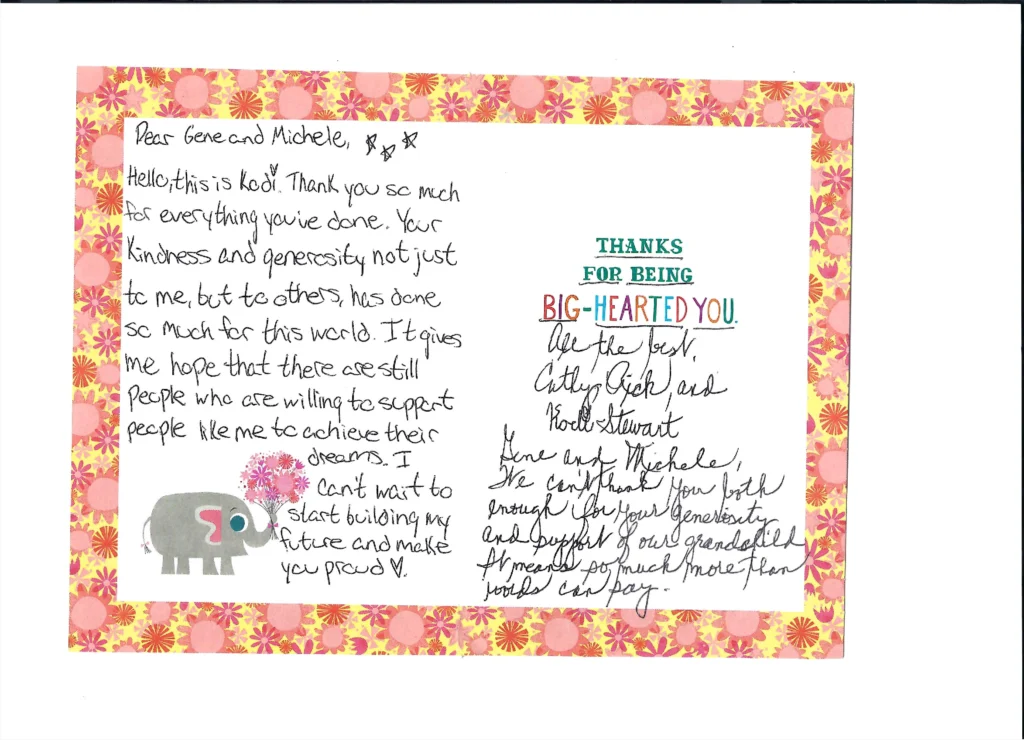 Dear Gene and Michele,
Hello, this is Kodi. Thank you so much
for everything you've done. Your
kindness and generosity not just
to me, but to others, has done
so much for this world. It gives
me hope that there are still
people who are willing to support
people like me to achieve their
dreams. I
can't wait to
start building my
future and make
you proud ♡.
THANKS
FOR BEING
BIG-HEARTED YOU.
All the best,
Cathy, Rick, and
Kodi Stewart
Gene and Michele,
We can't thank you both
enough for your generosity
and support of our grandchild
It means so much more than
words can say.